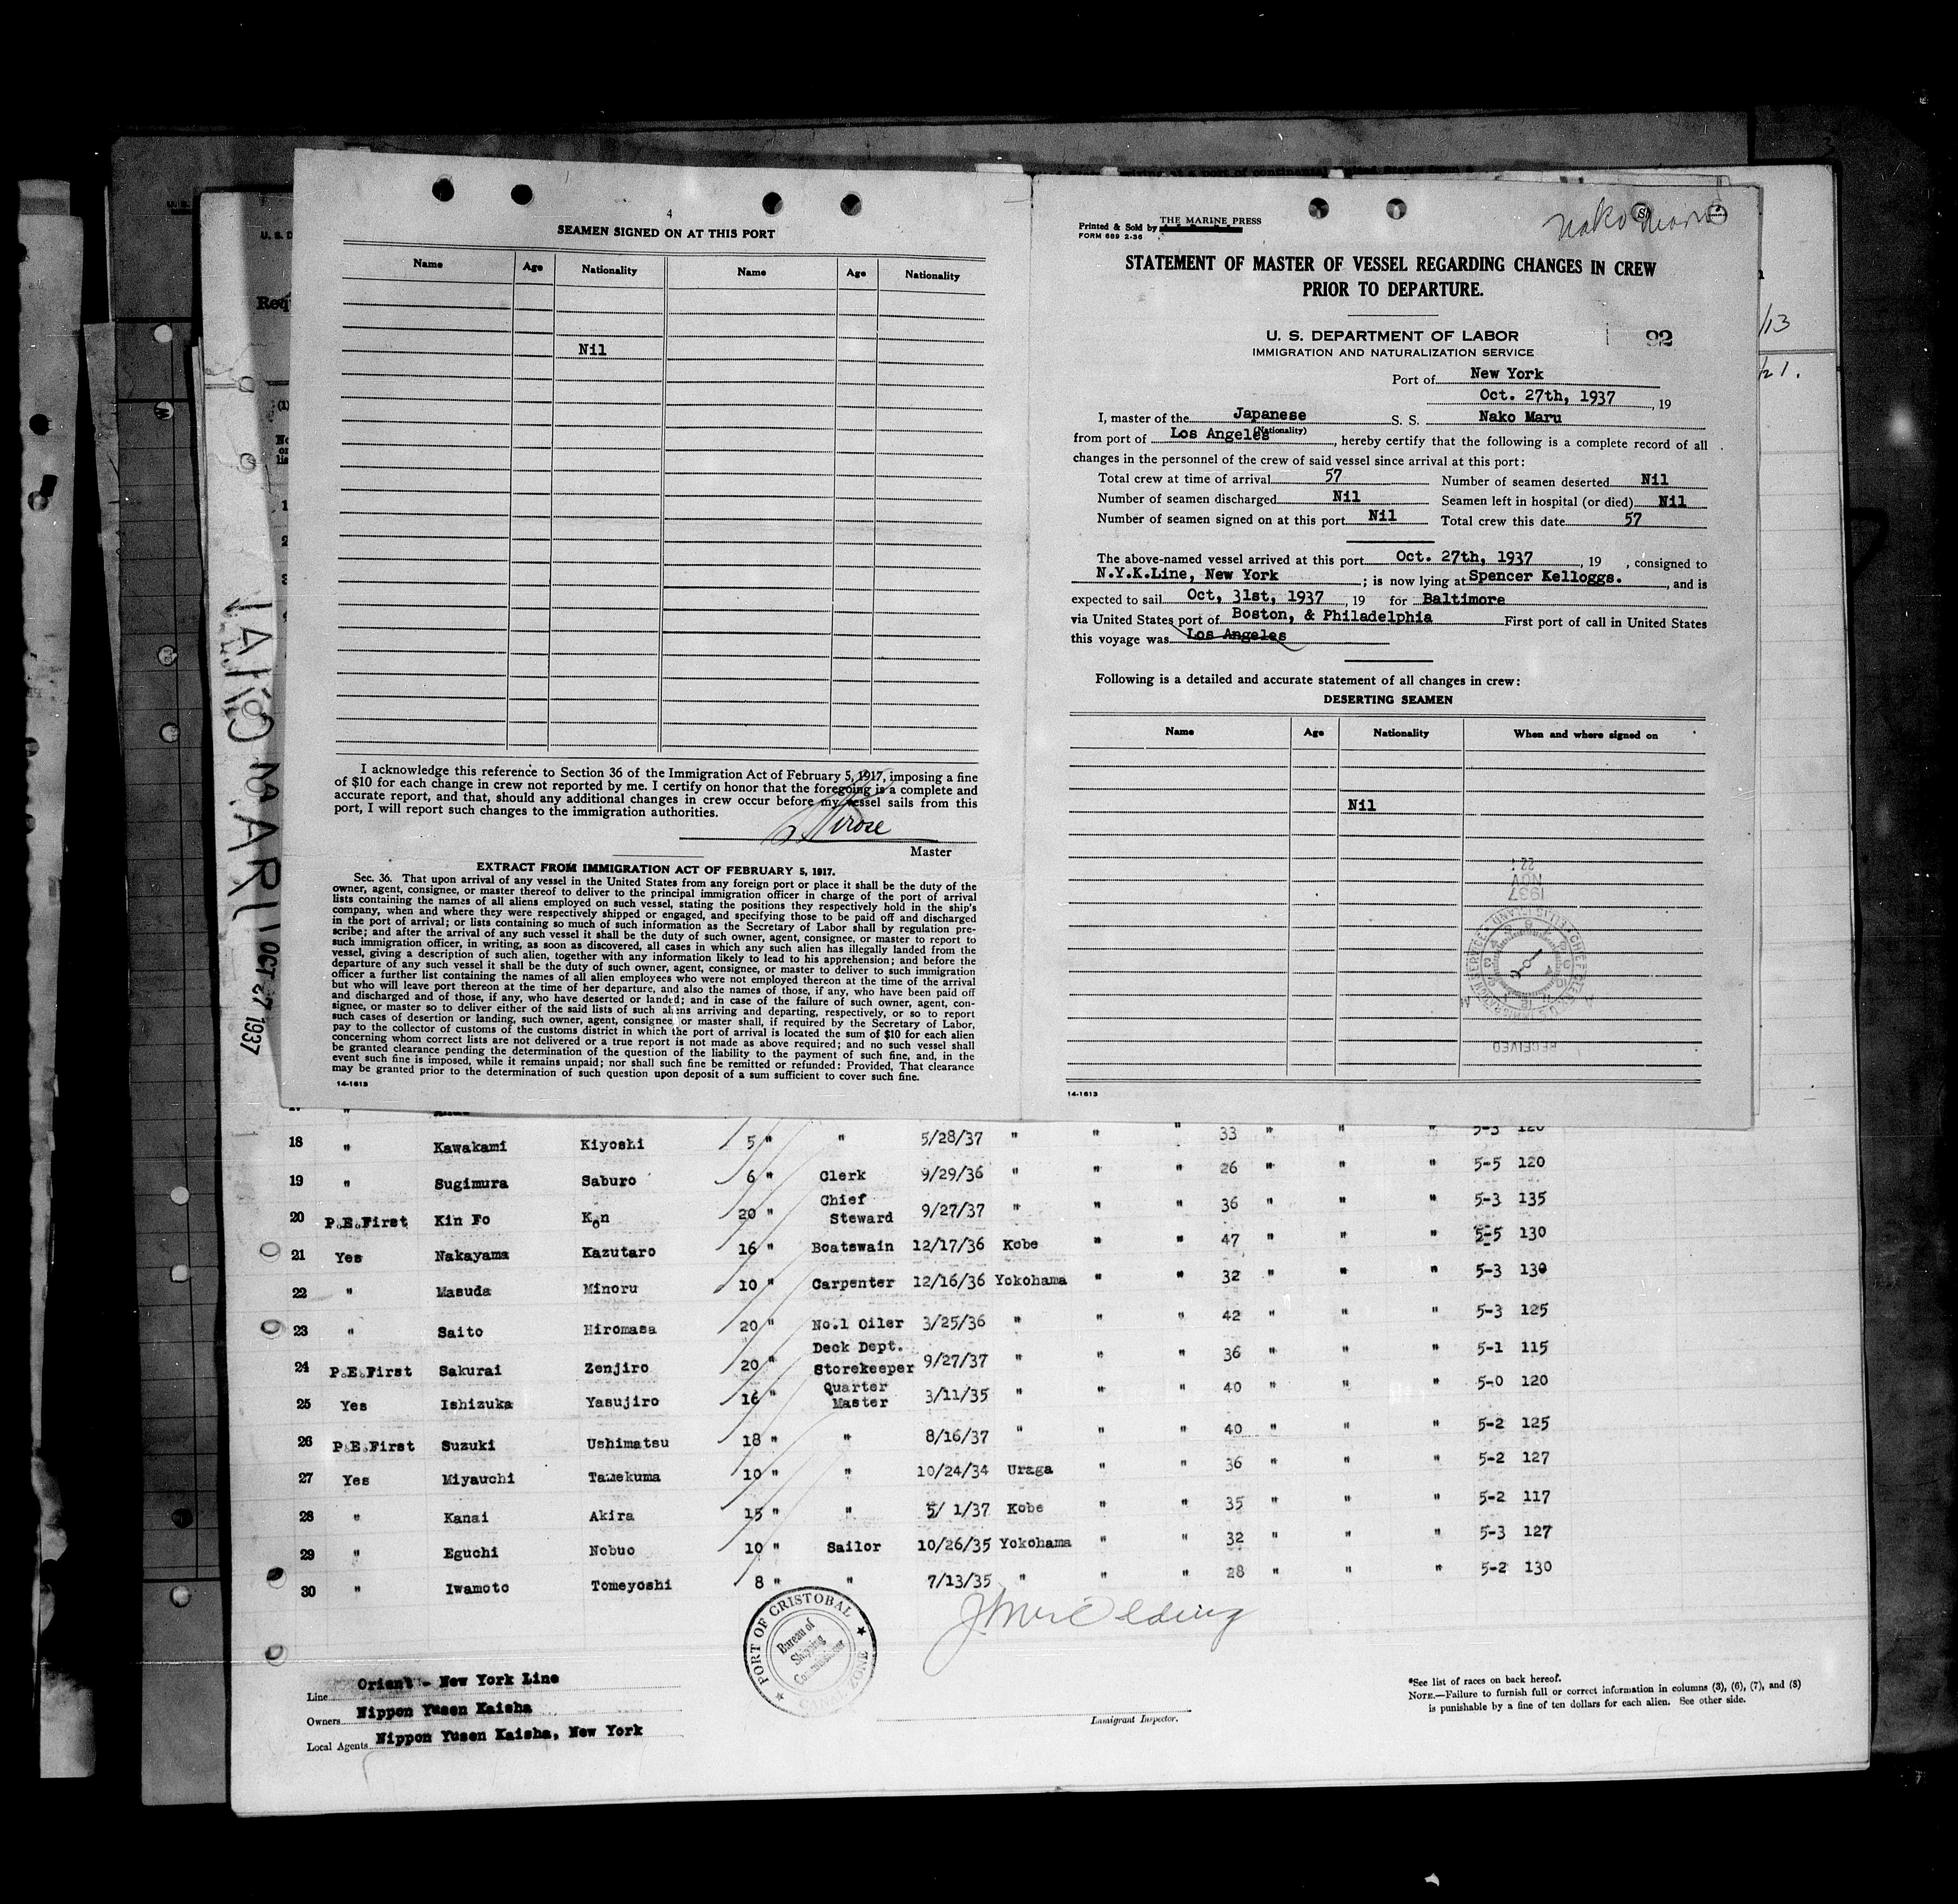 4
SEAMEN SIGNED ON AT THIS PORT
Name Age Nationality Name Age Nationality
Nil
I acknowledge this reference to Section 36 of the Immigration Act of February 5, 1917, imposing a fine
of $10 for each change in crew not reported by me. I certify on honor that the foregoing is a complete and
accurate report, and that, should any additional changes in crew occur before my vessel sails from this
port, I will report such changes to the immigration authorities.
Hirose
Master
EXTRACT FROM IMMIGRATION ACT OF FEBRUARY 5, 1917.
Sec. 36. That upon arrival of any vessel in the United States from any foreign port or place it shall be the duty of the
owner, agent, consignee, or master thereof to deliver to the principal immigration officer in charge of the port of arrival
lists containing the names of all aliens employed on such vessel, stating the positions they respectively hold in the ship's
company, when and where they were respectively shipped or engaged, and specifying those to be paid off and discharged
in the port of arrival; or lists containing so much of such information as the Secretary of Labor shall by regulation pre-
scribe; and after the arrival of any such vessel it shall be the duty of such owner, agent, consignee, or master to report to
such immigration officer, in writing, as soon as discovered, all cases in which any such alien has illegally landed from the
vessel, giving a description of such alien, together with any information likely to lead to his apprehension; and before the
departure of any such vessel it shall be the duty of such owner, agent, consignee, or master to deliver to such immigration
officer a further list containing the names of all alien employees who were not employed thereon at the time of the arrival
but who will leave port thereon at the time of her departure, and also the names of those, if any, who have been paid off
and discharged and of those, if any, who have deserted or landed; and in case of the failure of such owner, agent, con-
signee, or master so to deliver either of the said lists of such aliens arriving and departing, respectively, or so to report
such cases of desertion or landing, such owner, agent, consignee, or master shall, if required by the Secretary of Labor,
pay to the collector of customs of the customs district in which the port of arrival is located the sum of $10 for each alien
concerning whom correct lists are not delivered or a true report is not made as above required; and no such vessel shall
be granted clearance pending the determination of the question of the liability to the payment of such fine, and, in the
event such fine is imposed, while it remains unpaid; nor shall such fine be remitted or refunded: Provided, That clearance
may be granted prior to the determination of such question upon deposit of a sum sufficient to cover such fine.
14-1613
Printed & Sold by THE MARINE PRESS
FORM 689 2-36
Nako Maru
STATEMENT OF MASTER OF VESSEL REGARDING CHANGES IN CREW
PRIOR TO DEPARTURE.
U. S. DEPARTMENT OF LABOR
IMMIGRATION AND NATURALIZATION SERVICE
92
Port of New York
Oct. 27th, 1937, 19
I, master of the Japanese S. S. Nako Maru
(Nationality)
from port of Los Angeles, hereby certify that the following is a complete record of all
changes in the personnel of the crew of said vessel since arrival at this port:
Total crew at time of arrival 57 Number of seamen deserted Nil
Number of seamen discharged Nil Seamen left in hospital (or died) Nil
Number of seamen signed on at this port Nil Total crew this date 57
The above-named vessel arrived at this port Oct. 27th, 1937, 19 , consigned to
N.Y.K.Line, New York ; is now lying at Spencer Kelloggs. , and is
expected to sail Oct, 31st, 1937, 19 for Baltimore
via United States port of Boston, & Philadelphia First port of call in United States
this voyage was Los Angeles
Following is a detailed and accurate statement of all changes in crew:
DESERTING SEAMEN
Name Age Nationality When and where signed on
Nil
NOV
1937
RECEIVED
14-1613
OCT 27 1937
18 " Kawakami Kiyoshi 5 " " 5/28/37 " " " 33 " " " 5-3 120
19 " Sugimura Saburo 6 " Clerk 9/29/36 " " " 26 " " " 5-5 120
20 P.E.First Kin Fo Kon 20 " Chief Steward 9/27/37 " " " 36 " " " 5-3 135
21 Yes Nakayama Kazutaro 16 " Boatswain 12/17/36 Kobe " " 47 " " " 5-5 130
22 " Masuda Minoru 10 " Carpenter 12/16/36 Yokohama " " 32 " " " 5-3 130
23 " Saito Hiromasa 20 " No.1 Oiler 3/25/36 " " " 42 " " " 5-3 125
24 P.E.First Sakurai Zenjiro 20 " Deck Dept. Storekeeper 9/27/37 " " " 36 " " " 5-1 115
25 Yes Ishizuka Yasujiro 16 " Quarter Master 3/11/35 " " " 40 " " " 5-0 120
26 P.E.First Suzuki Ushimatsu 18 " " 8/16/37 " " " 40 " " " 5-2 125
27 Yes Miyauchi Tamekuma 10 " " 10/24/34 Uraga " " 36 " " " 5-2 127
28 " Kanai Akira 15 " " 5/ 1/37 Kobe " " 35 " " " 5-2 117
29 " Eguchi Nobuo 10 " Sailor 10/26/35 Yokohama " " 32 " " " 5-3 127
30 " Iwamoto Tomeyoshi 8 " " 7/13/35 " " " 28 " " " 5-2 130
PORT OF CRISTOBAL
Bureau of
Shipping
Commissioner
ZONE
Line Orient - New York Line
Owners Nippon Yusen Kaisha
Local Agents Nippon Yusen Kaisha, New York
Immigrant Inspector.
*See list of races on back hereof.
NOTE.—Failure to furnish full or correct information in columns (3), (6), (7), and (8)
is punishable by a fine of ten dollars for each alien. See other side.